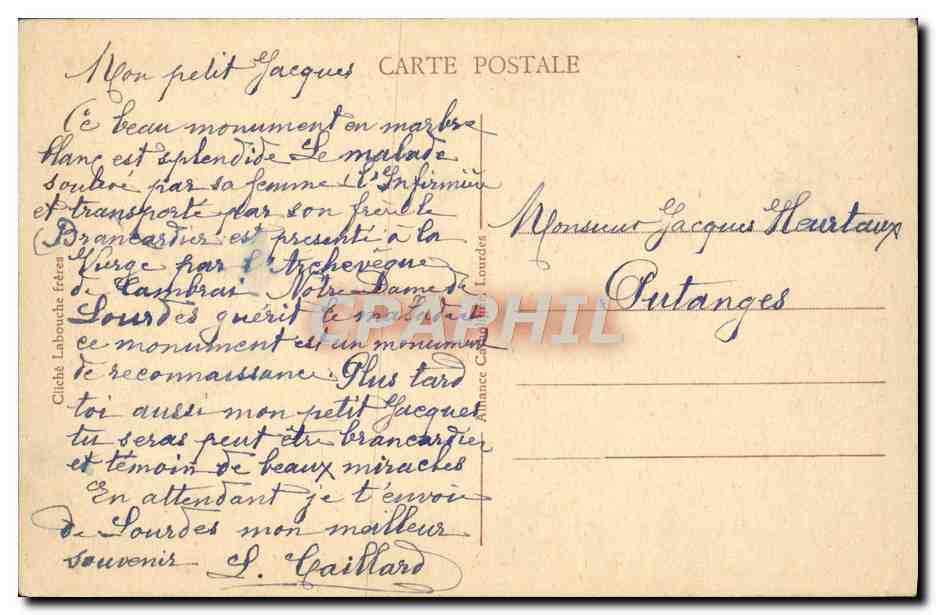 CARTE POSTALE
Mon petit Jacques
Ce beau monument en marbre
blanc est splendide Le malade
soulevé par sa femme l'Infirmière
et transporté par son frère le
Brancardier est presenté à la
Vierge par l'Archevêque
de Cambrai Notre-Dame de
Lourdes guérit le malade et
ce monument est un monument
de reconnaissance. Plus tard
toi aussi mon petit Jacques
tu seras peut être brancardier
et témoin de beaux miracles
En attendant je t'envoie
de Lourdes mon meilleur
souvenir L. Caillard
Monsieur Jacques Heurtaux
Putanges
Cliché Labouche frères
Alliance Catholique Lourdes
CPAPHIL